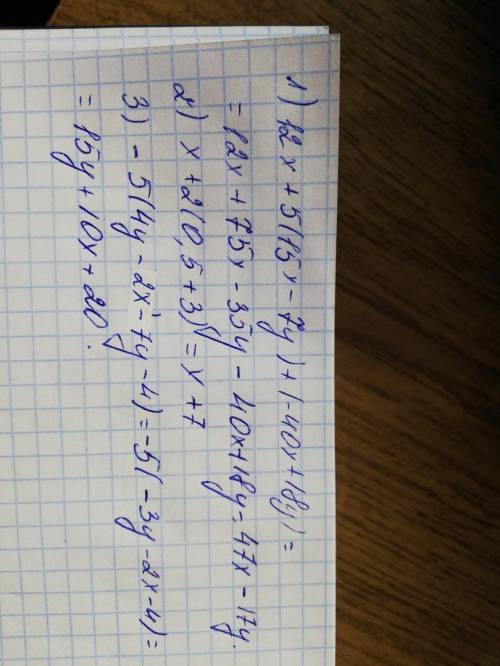 1) 12x + 5(15x - 7y) + (-40x + 18y) =
= 12x + 75x - 35y - 40x + 18y = 47x - 17y.
2) x + 2(0,5 + 3) = x + 7
3) - 5(4y - 2x - 7y - 4) = -5(-3y - 2x - 4) =
= 15y + 10x + 20.